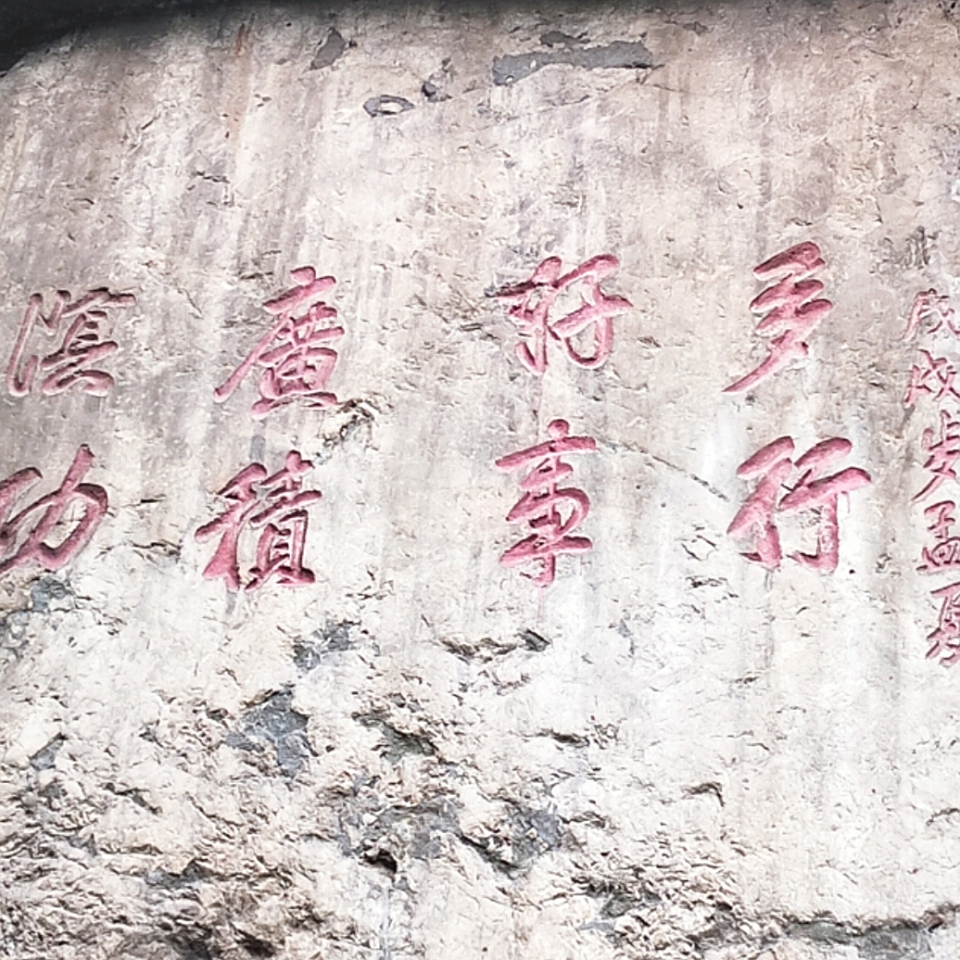 戊戌岁孟夏
多行
好事
廣積
功